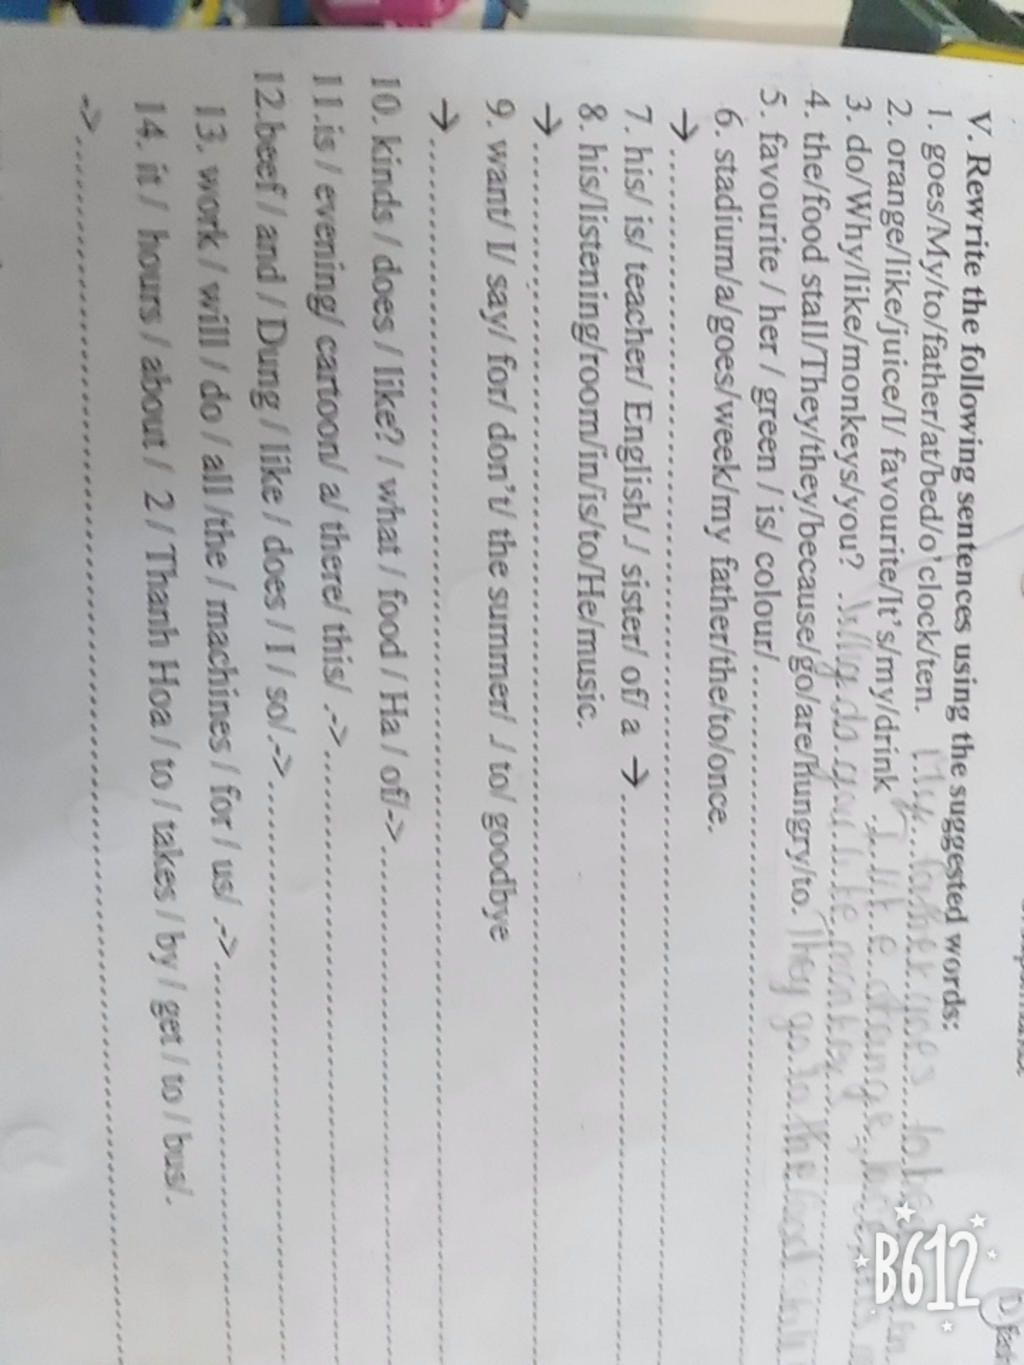 V. Rewrite the following sentences using the suggested words:
1. goes/My/to/father/at/bed/o'clock/ten. My father goes to
2. orange/like/juice/I/ favourite/It's/my/drink I like orange
3. do/Why/like/monkeys/you? Why do you like monkeys
4. the/food stall/They/they/because/go/are/hungry/to. They go to the food
5. favourite / her / green / is/ colour/.
6. stadium/a/goes/week/my father/the/to/once.
→
7. his/ is/ teacher/ English/./ sister/ of/ a →
8. his/listening/room/in/is/to/He/music.
→
9. want/ I/ say/ for/ don't/ the summer/ ./ to/ goodbye
→
10. kinds / does / like? / what / food / Ha / of/->
11.is / evening/ cartoon/ a/ there/ this/ .->
12.beef / and / Dung / like / does / I / so/.->
13. work / will / do / all /the / machines / for / us/ .->
14. it / hours / about / 2 / Thanh Hoa / to / takes / by / get / to / bus/.
->
B612